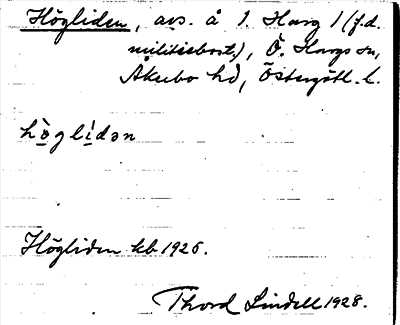 Högliden, avs. å 1 Harg 1 (f.d.
militiebost.), Ö. Hargs sn,
Åkerbo hd, Östergötl. l.
hö̀glìdən
Högliden kb 1926.
Thord Lindell 1928.